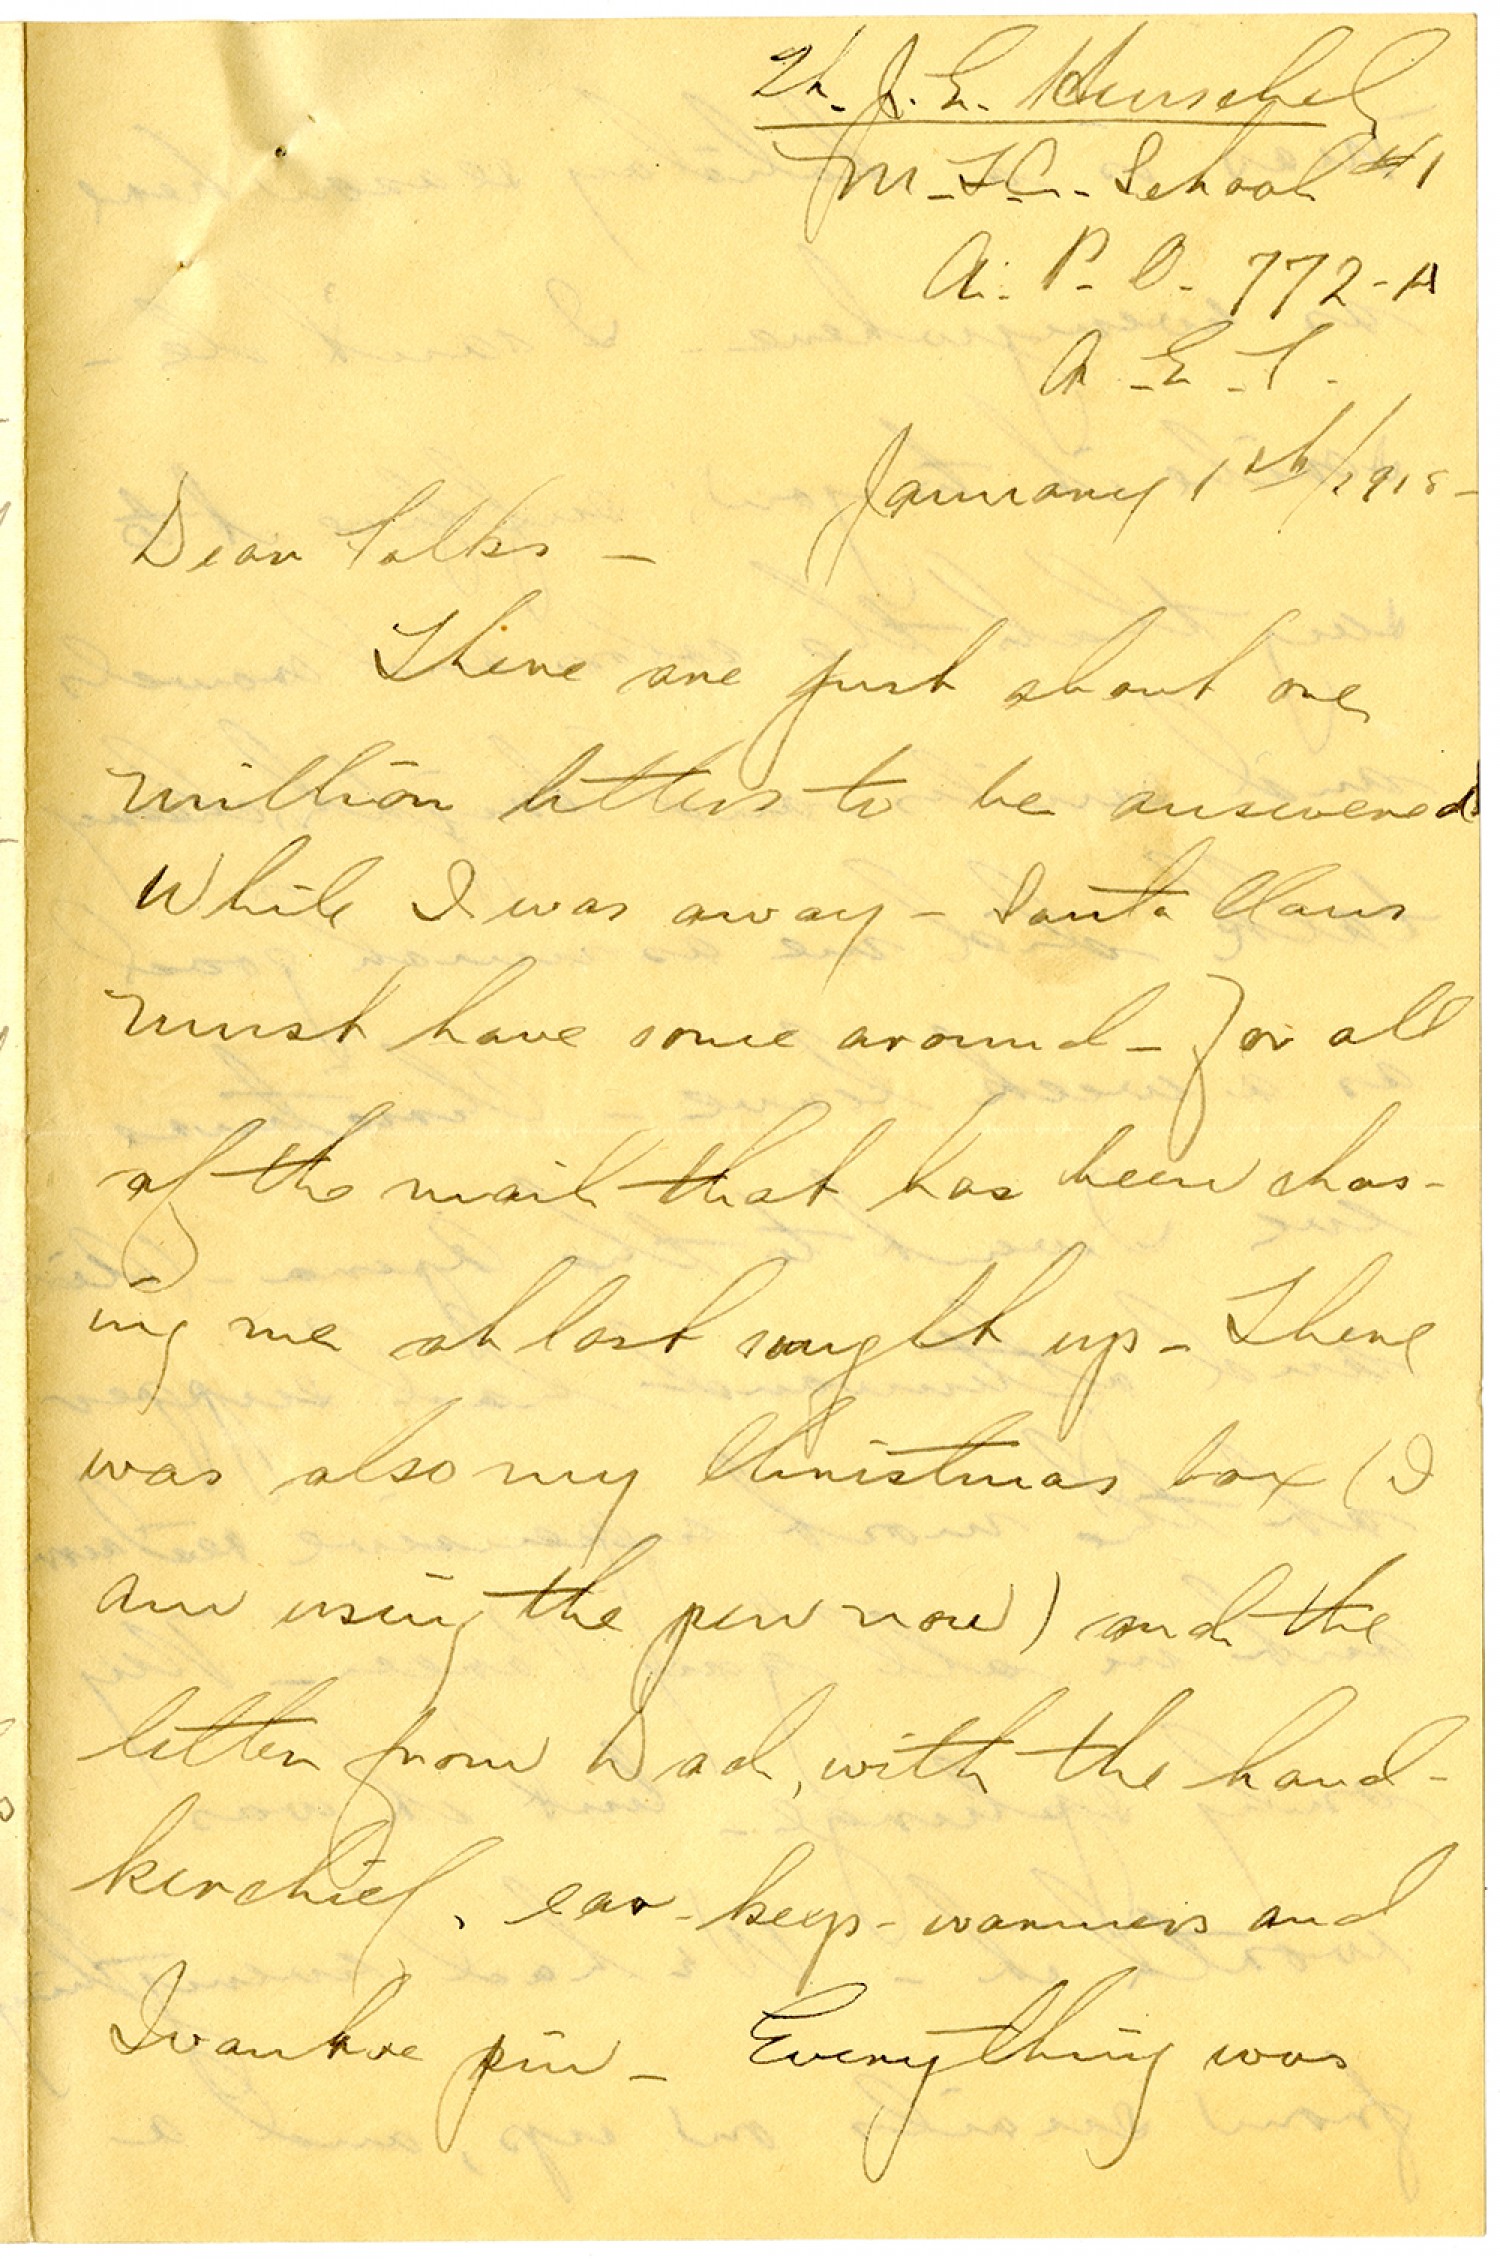 Lt. J. E. Hirschel
M.T.C. School #1
A. P. O. 772-A
A. E. F.
January 1st/1918-
Dear Folks —
There are just about one
million letters to be answered
While I was away — Santa Claus
must have come around — for all
of the mail that has been chas-
ing me at last caught up — There
was also my Christmas box (I
am using the pen now) and the
letter from Dad, with the hand-
kerchief, ear-keep-warmers and
Ivanhoe pin — Everything was